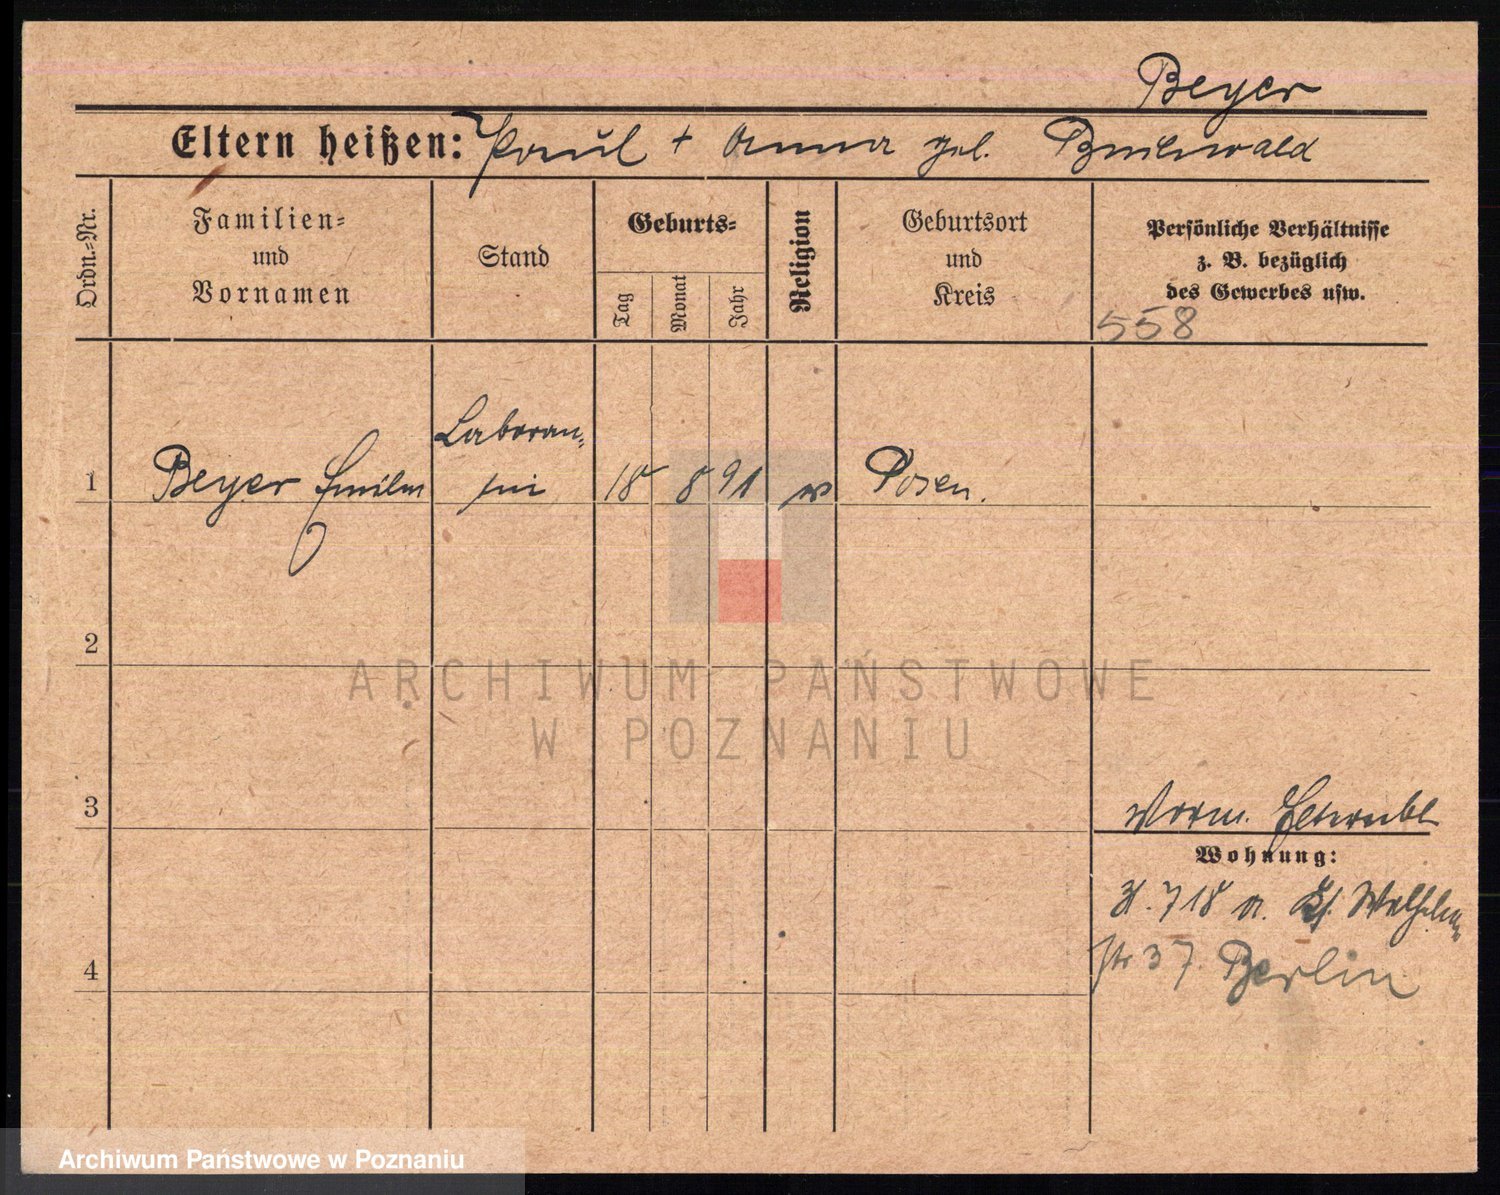 Beyer
Eltern heißen: Paul + Anna geb.
Ordn.=Nr.
Familien=
und
Vornamen
Stand
Geburts=
Tag
Monat
Jahr
Religion
Geburtsort
und
Kreis
Persönliche Verhältnisse
z. B. bezüglich
des Gewerbes usw.
558
Laboran=
1 Beyer tin 18 8 91 Posen.
2
ARCHIWUM PAŃSTWOWE
W POZNANIU
3
Vorm.
Wohnung:
718
str 37. Berlin
4
Archiwum Państwowe w Poznaniu